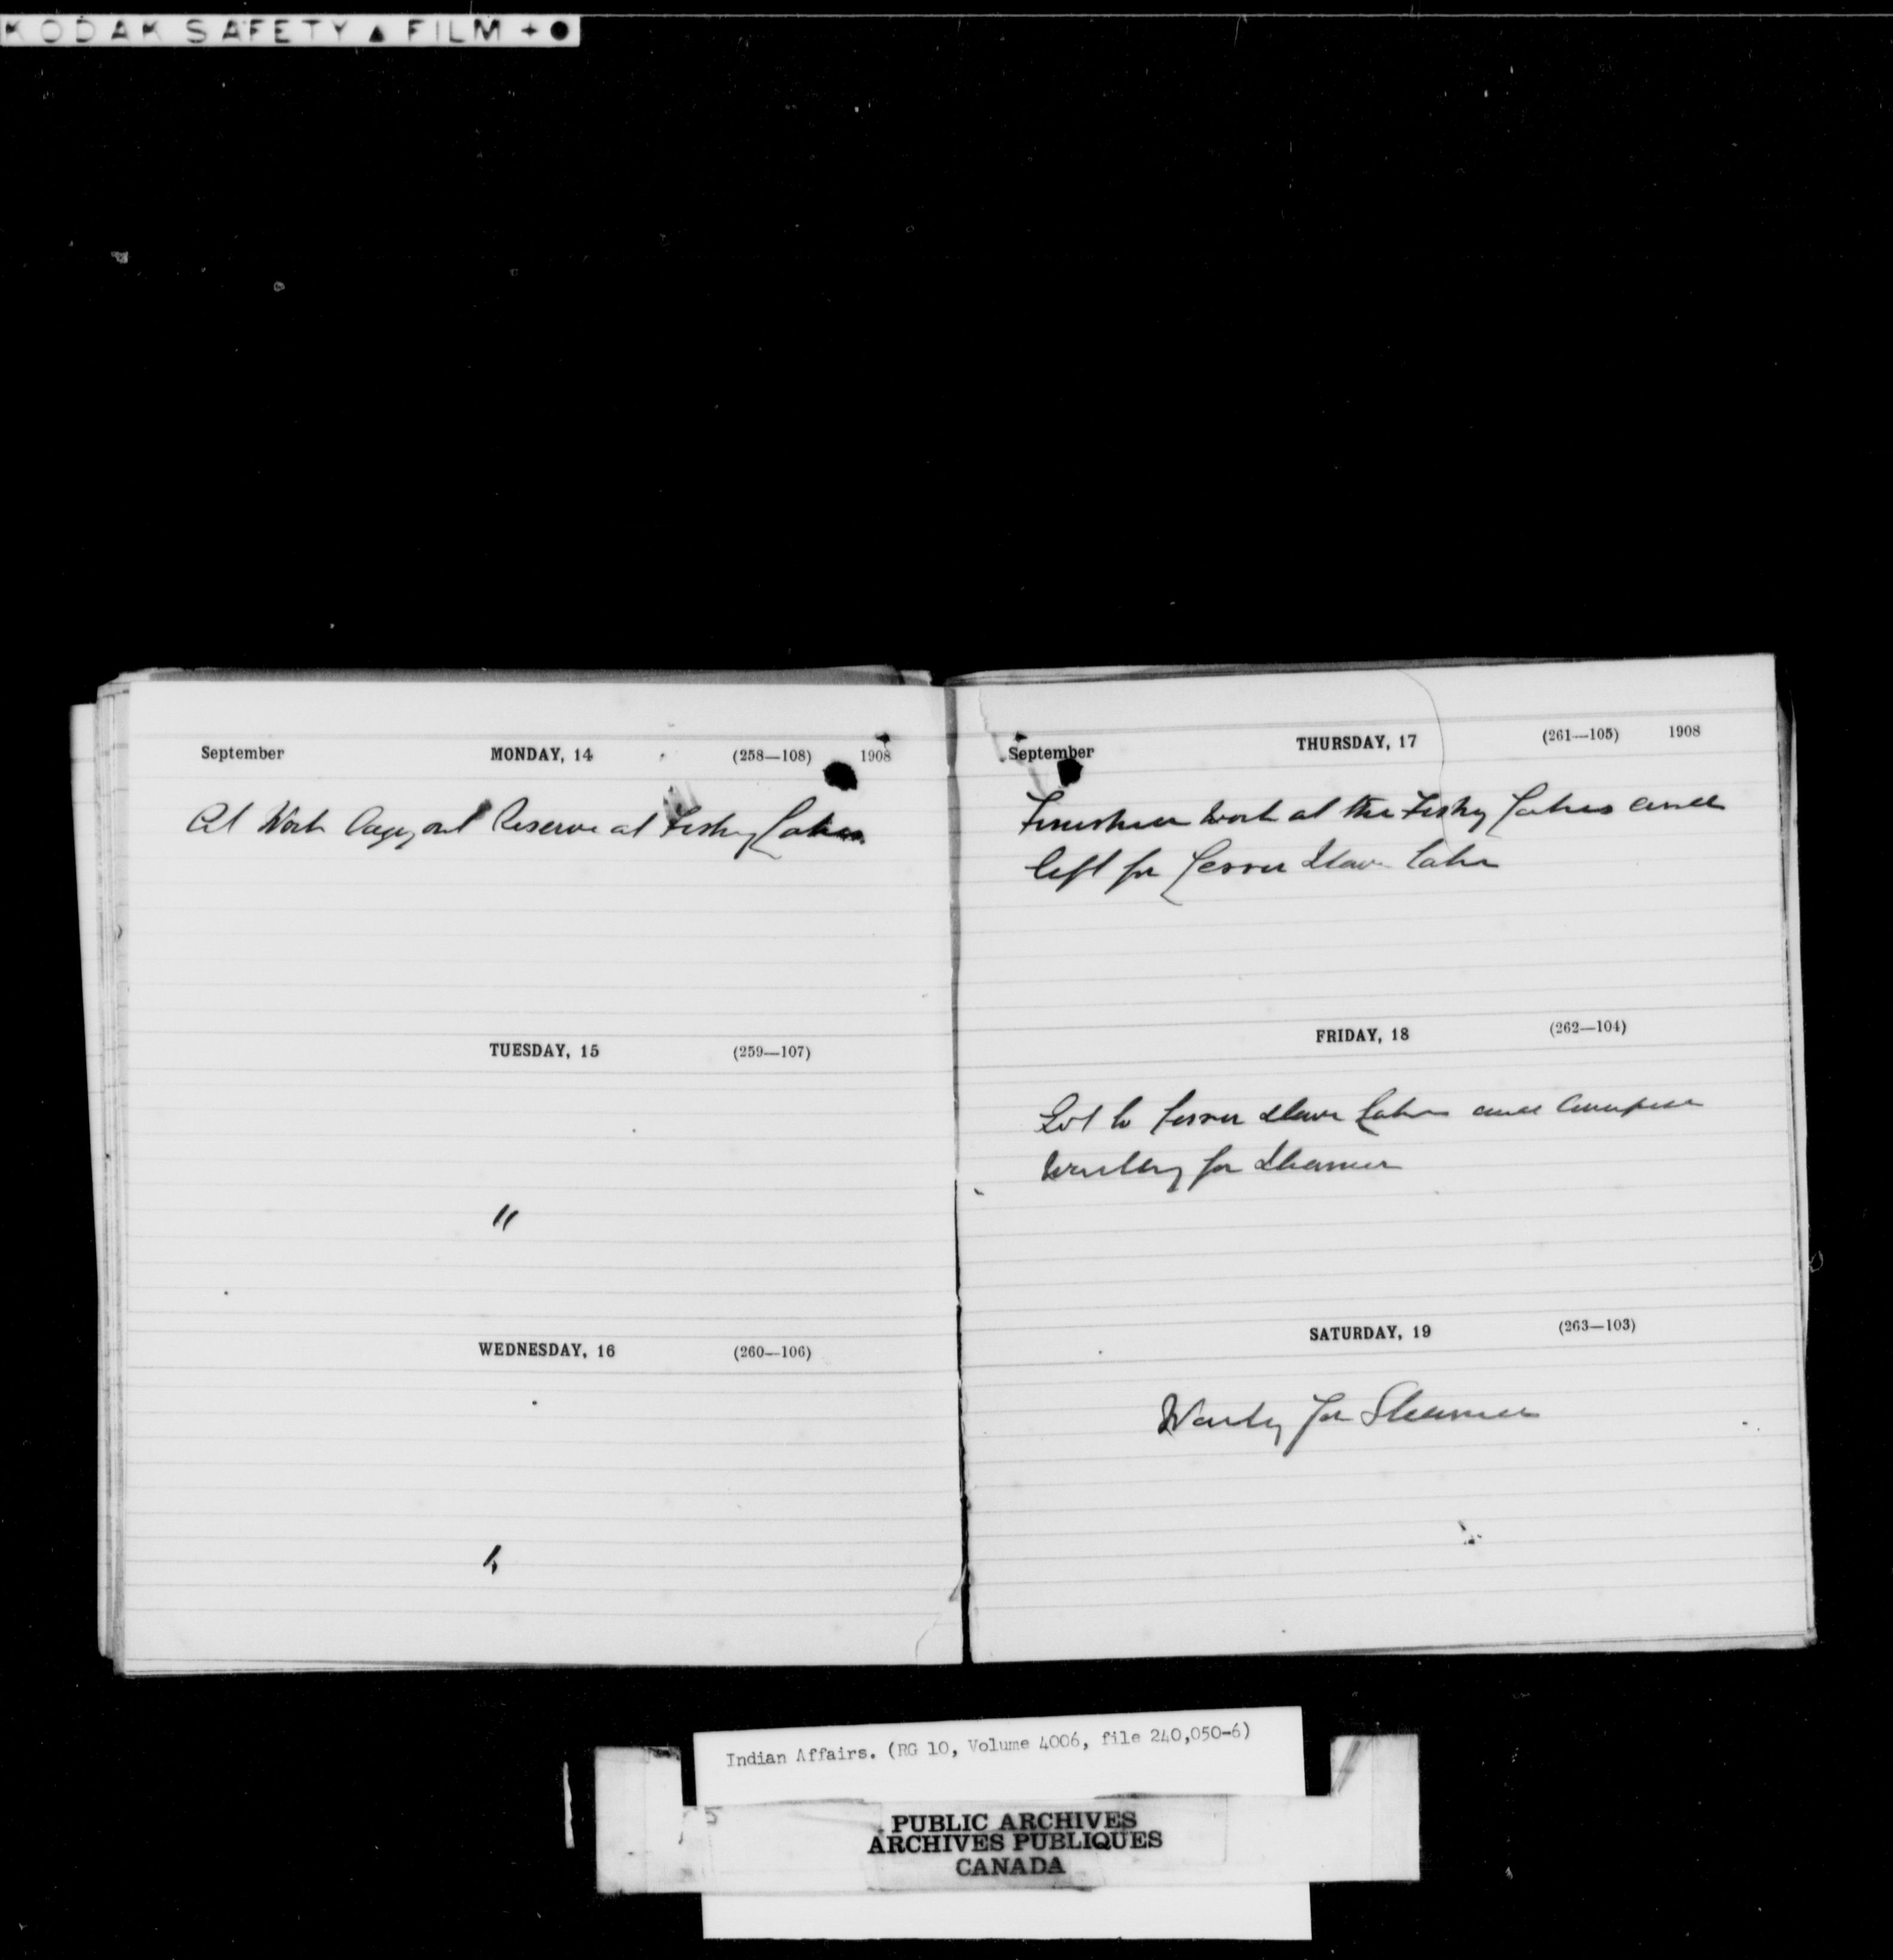 KODAK SAFETY ▲ FILM + ●
September MONDAY, 14 (258—108) 1908
At Work laying out Reserve at Fishing Lakes
TUESDAY, 15 (259—107)
"
WEDNESDAY, 16 (260—106)
"
September THURSDAY, 17 (261—105) 1908
Finished work at the Fishing Lakes and
left for Lesser Slave Lake
FRIDAY, 18 (262—104)
Got to Lesser Slave Lake and camped
waiting for Steamer
SATURDAY, 19 (263—103)
Waiting for Steamer
Indian Affairs. (RG 10, Volume 4006, file 240,050-6)
PUBLIC ARCHIVES
ARCHIVES PUBLIQUES
CANADA